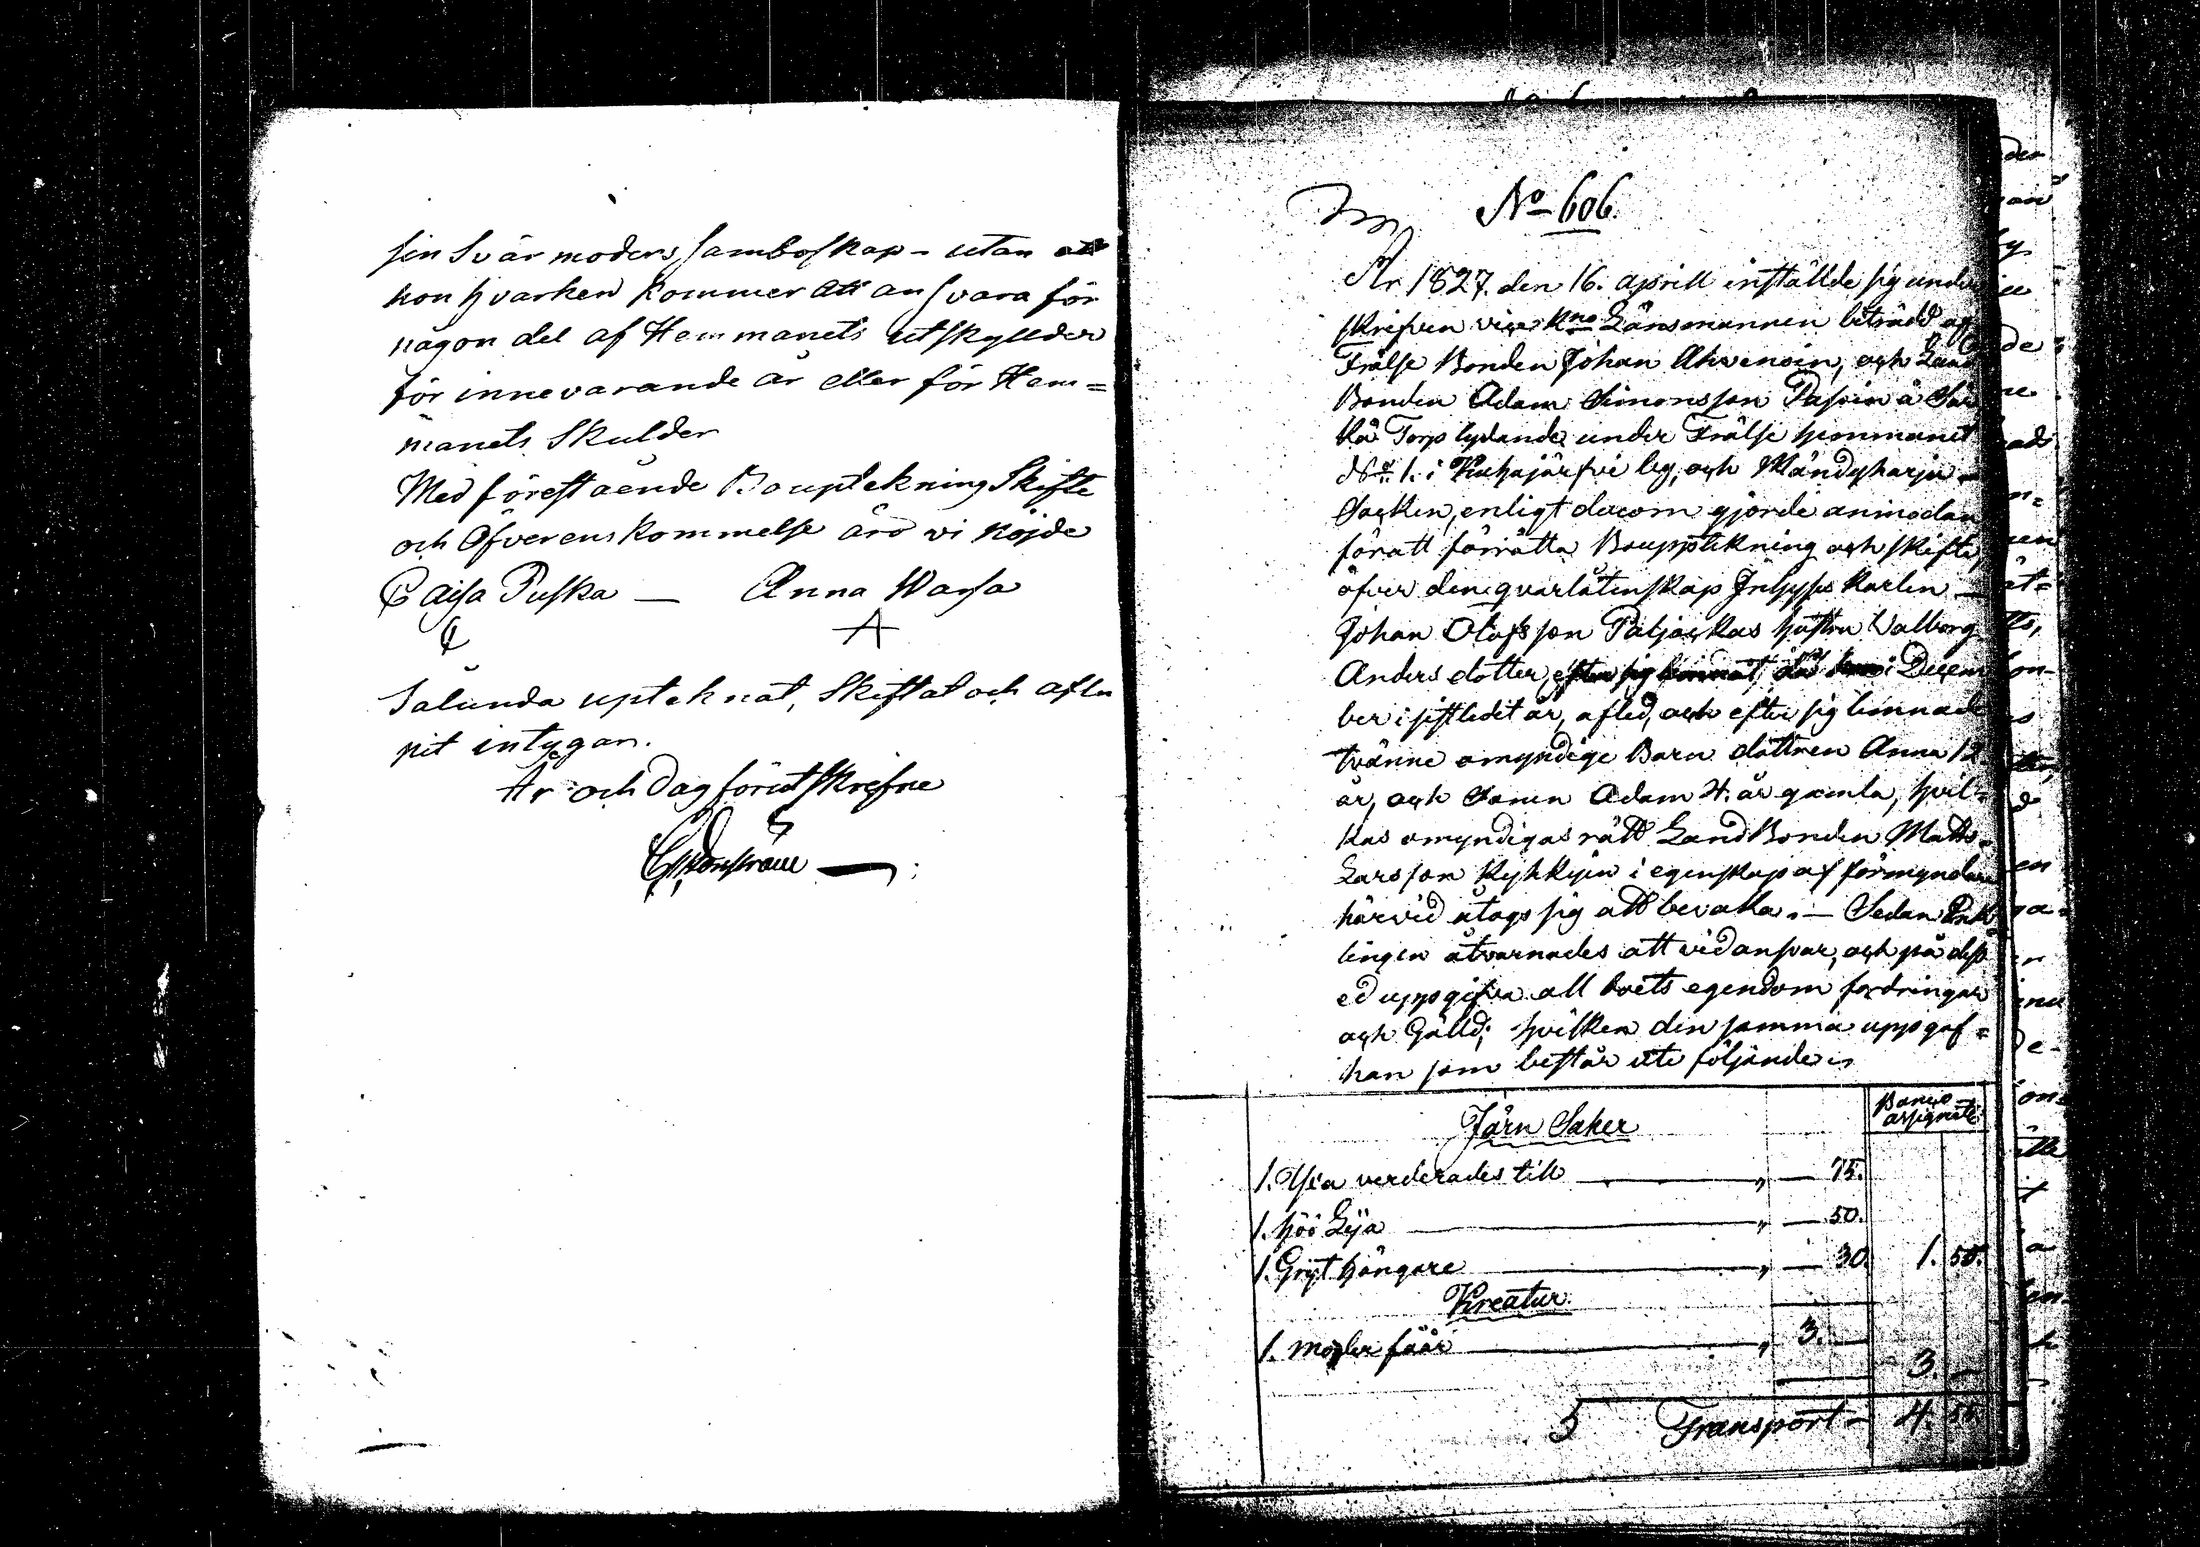 sin Svärmoders samboskap - utan att
hon hvarken kommer att ansvara för
någon del af Hemmanets utskyllder
för innevarande år eller för Hem=
manets Skulder
Med föreståënde Bouptekning Skifte
och Öfverenskommelse äro vi nöjde
Caisa Puska — Anna Warsa
Sålunda upteknat, Skiftat och aflu
pit intygar.
År och Dag förutskrefne
No 606.
År 1827. den 16. aprill inställde sig under
skrifven vice Kno Länsmannen biträdd af
Frälse Bonden Johan Ahvenoin, och Land
Bonden Adam Simonsson Pasoin å
Torp lydande under Frälse hemmanet
No 1. i by, och Mändyharju
Socken, enligt derom gjorde anmodan
föratt förrätta Bouppteckning och skifte,
öfver den qvarlåtenskap Inhyses karlen
Johan Olofsson Paljackas hustru Valborg
Anders dotter, efter sig lemnat, då hon i Decem
ber i sistledet år, afled, och efter sig lemnade
tvänne omyndige Barn dottren Anna 12
år, och Sonen Adam 4. år gamla, hvil=
kas omyndigas rätt LandBonden Matts
Larsson Kykkyin i egenskap af förmyndare
härvid åtogs sig att bevaka. — Sedan Enk
lingen åtvarnades att vid ansvar, och på dess
ed uppgifva all boets egendom fordringar
och Gälld; hvilken den samma uppgaf=
han som består uti följande
Banco
assignati:
Järn Saker
1. Yxa verderades till — " — 75.
1. höö Lija — " — 50.
1. Gryt hängare — " — 30. 1. 55.
Kreatur.
1. moder fåår — " 3. —
3. —
Transport — 4. 55.